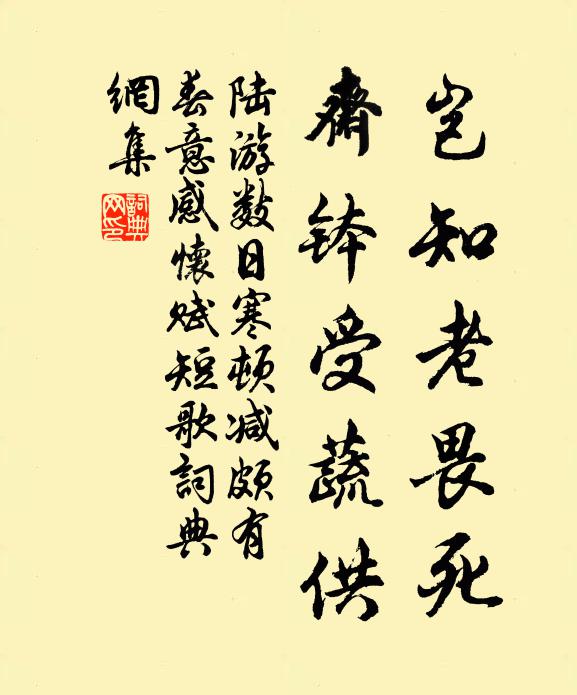 岂知老畏死
齋钵受蔬供
陆游数日寒顿减颇有
春意感懷赋短歌詞典
網集
詞典
网印